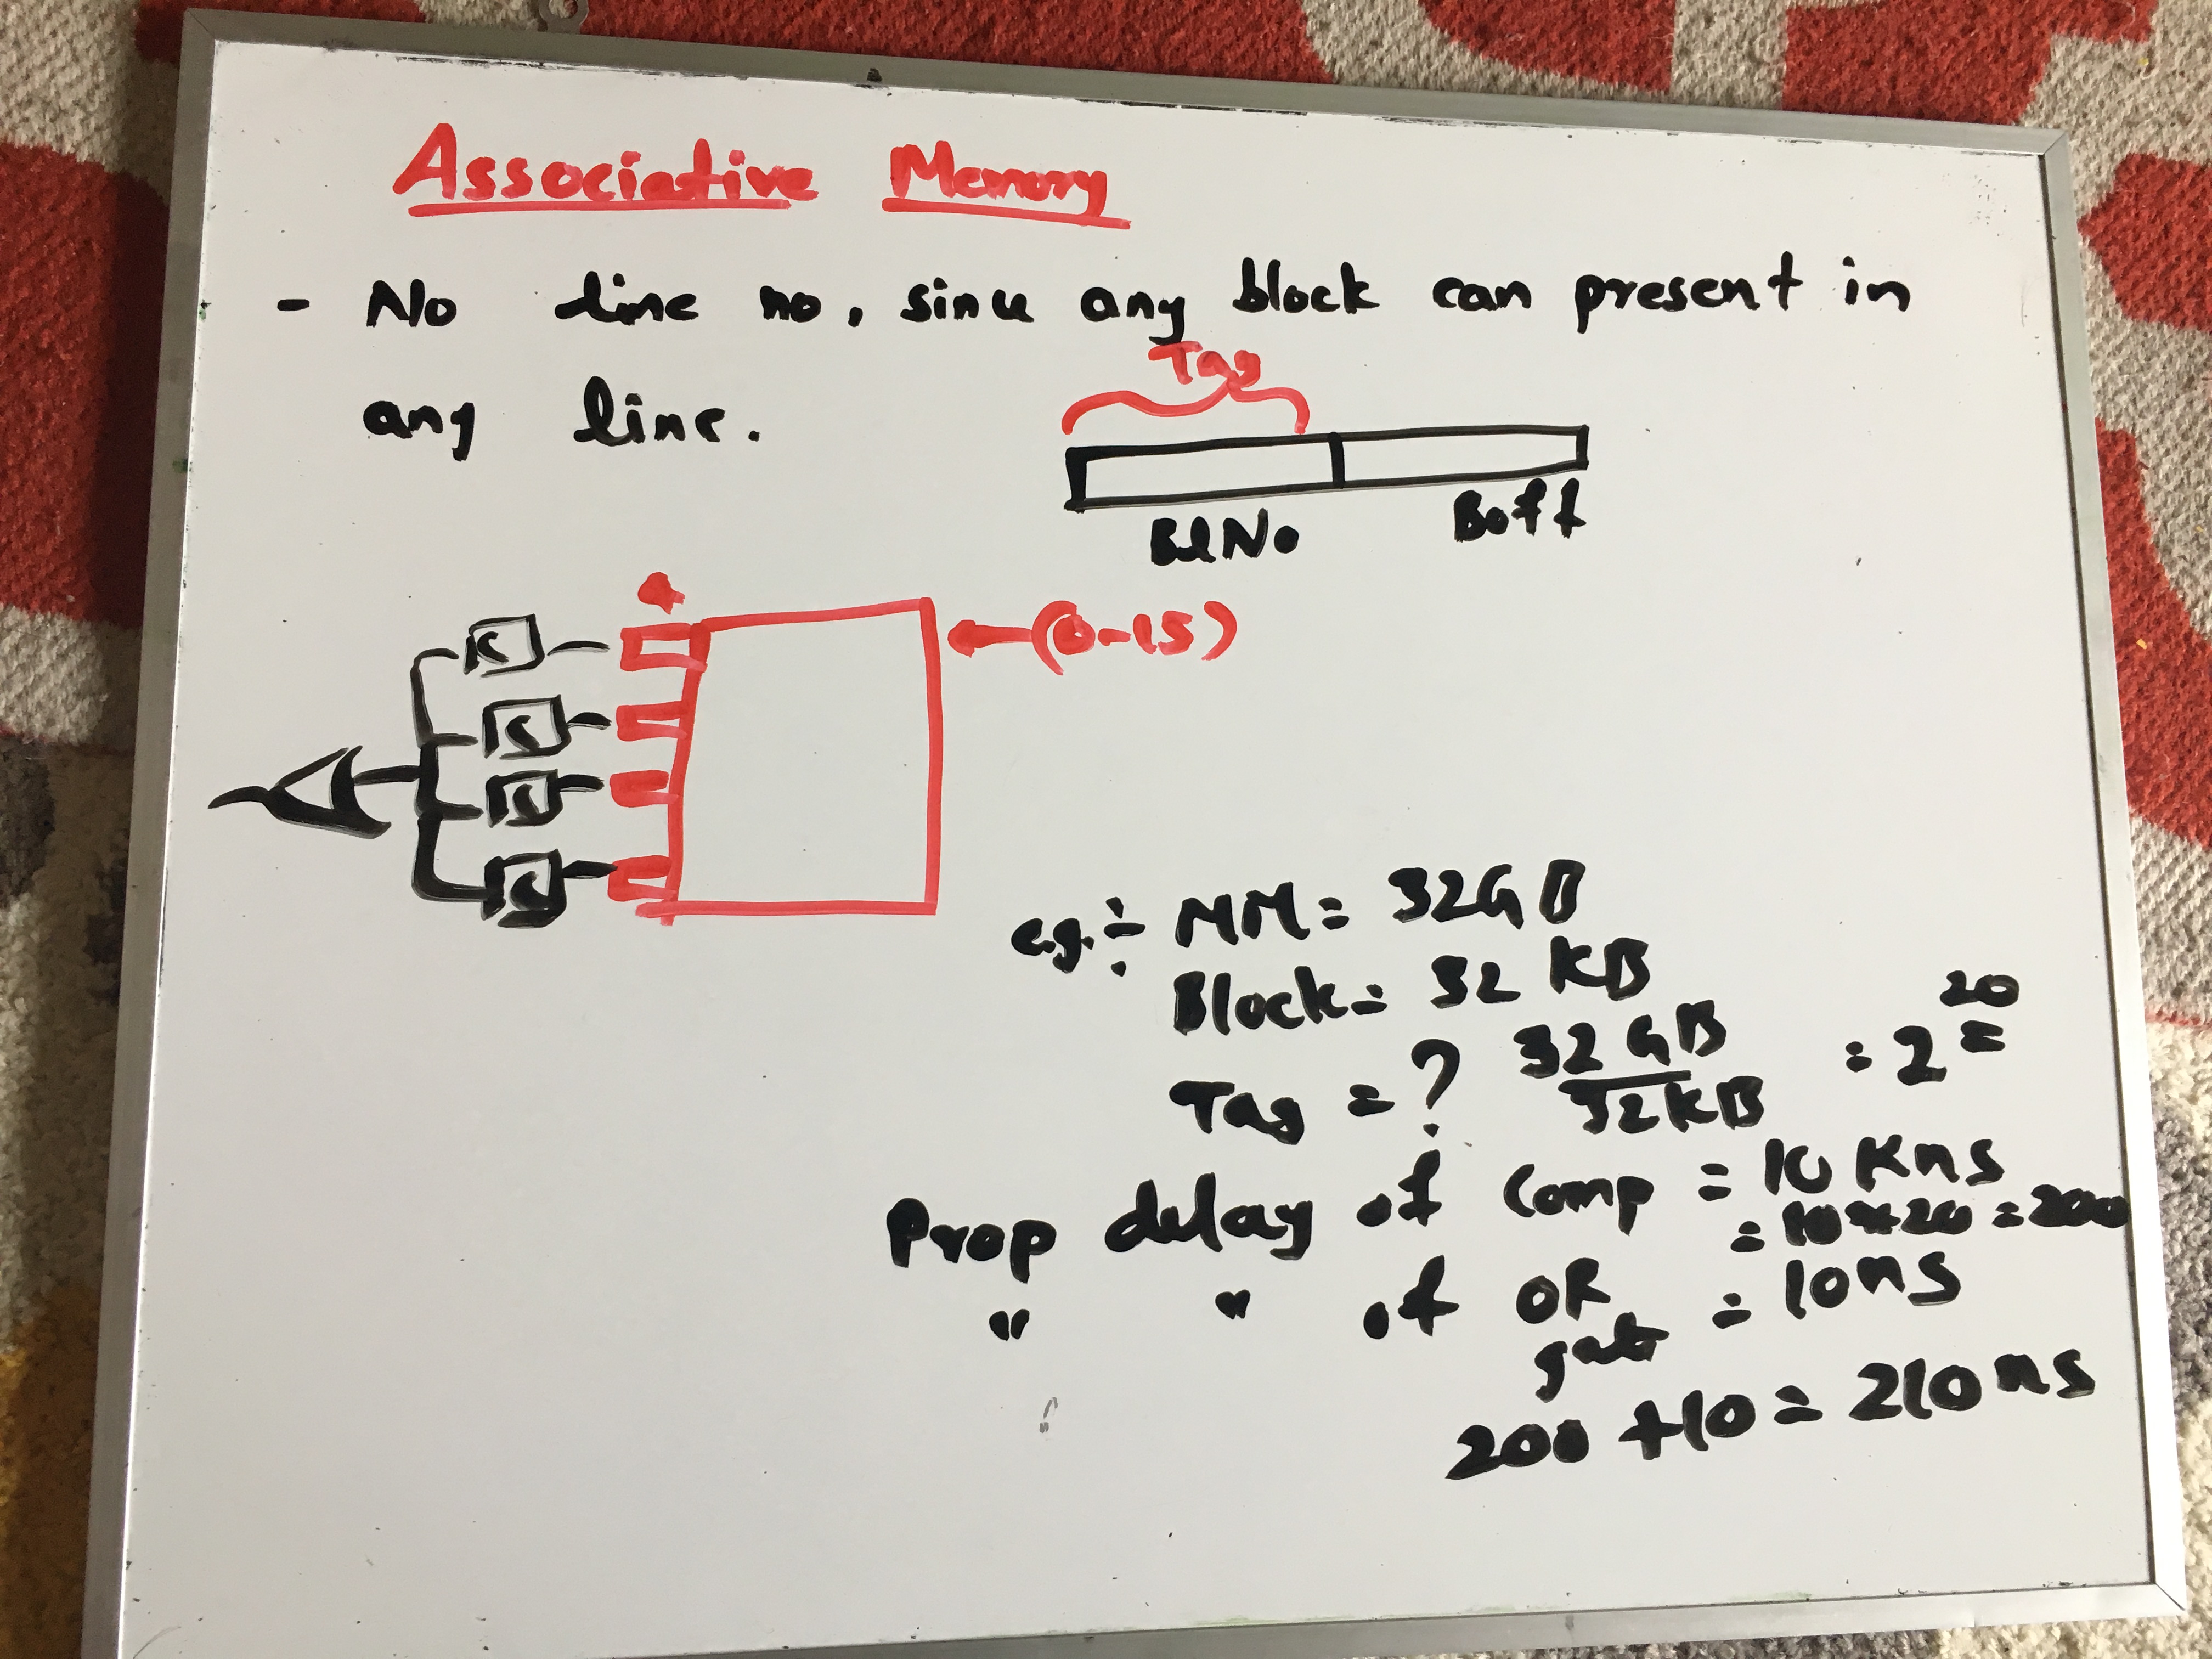 Associative Memory
- No line no, since any block can present in
any line.
Tag
Bl No Boff
4
(0-15)
C
C
C
C
eg:- MM = 32GB
Block = 32 KB
Tag = ? 32GB = 2^20 =
32KB
Prop delay of Comp = 10 K ns
= 10*20 = 200
" " of OR = 10ns
gate
200 + 10 = 210 ns